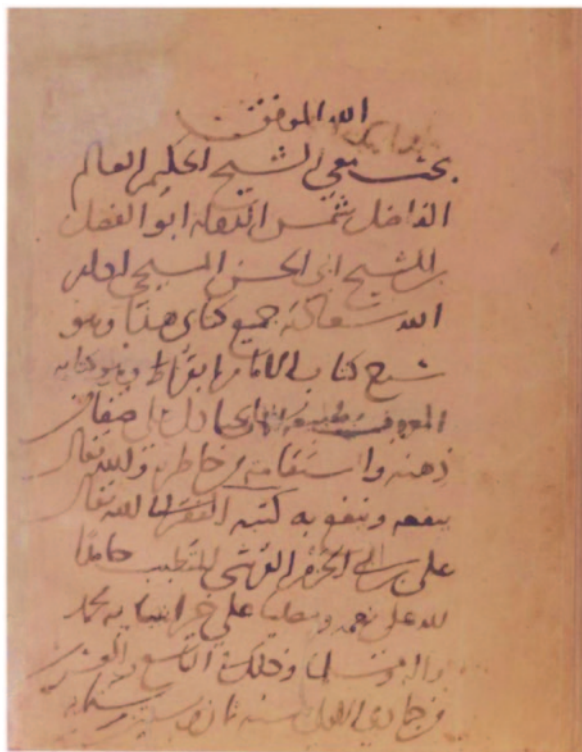 الله الموفق
بحث معي الشيخ الحكيم العالم
الفاضل شمس الدولة ابو الفضل
بن الشيخ ابي الحسن المسيحي ادام
الله سعادته جميع كتابي هذا وهو
شرح كتاب الامام ابقراط وهو كتابه
المعروف بطبيعة دل على صفاء
ذهنه واستقامة خاطره والله تعالى
ينفعه وينفع به كتبه الفقير الى الله تعالى
علي بن ابي الحزم القرشي المتطبب حامدا
لله على نعمه ومصليا على خير انبيائه محمد
واله ومسلما وذلك في التاسع والعشرين
من جمادى الاولى سنة ثمان وستين وستمائة